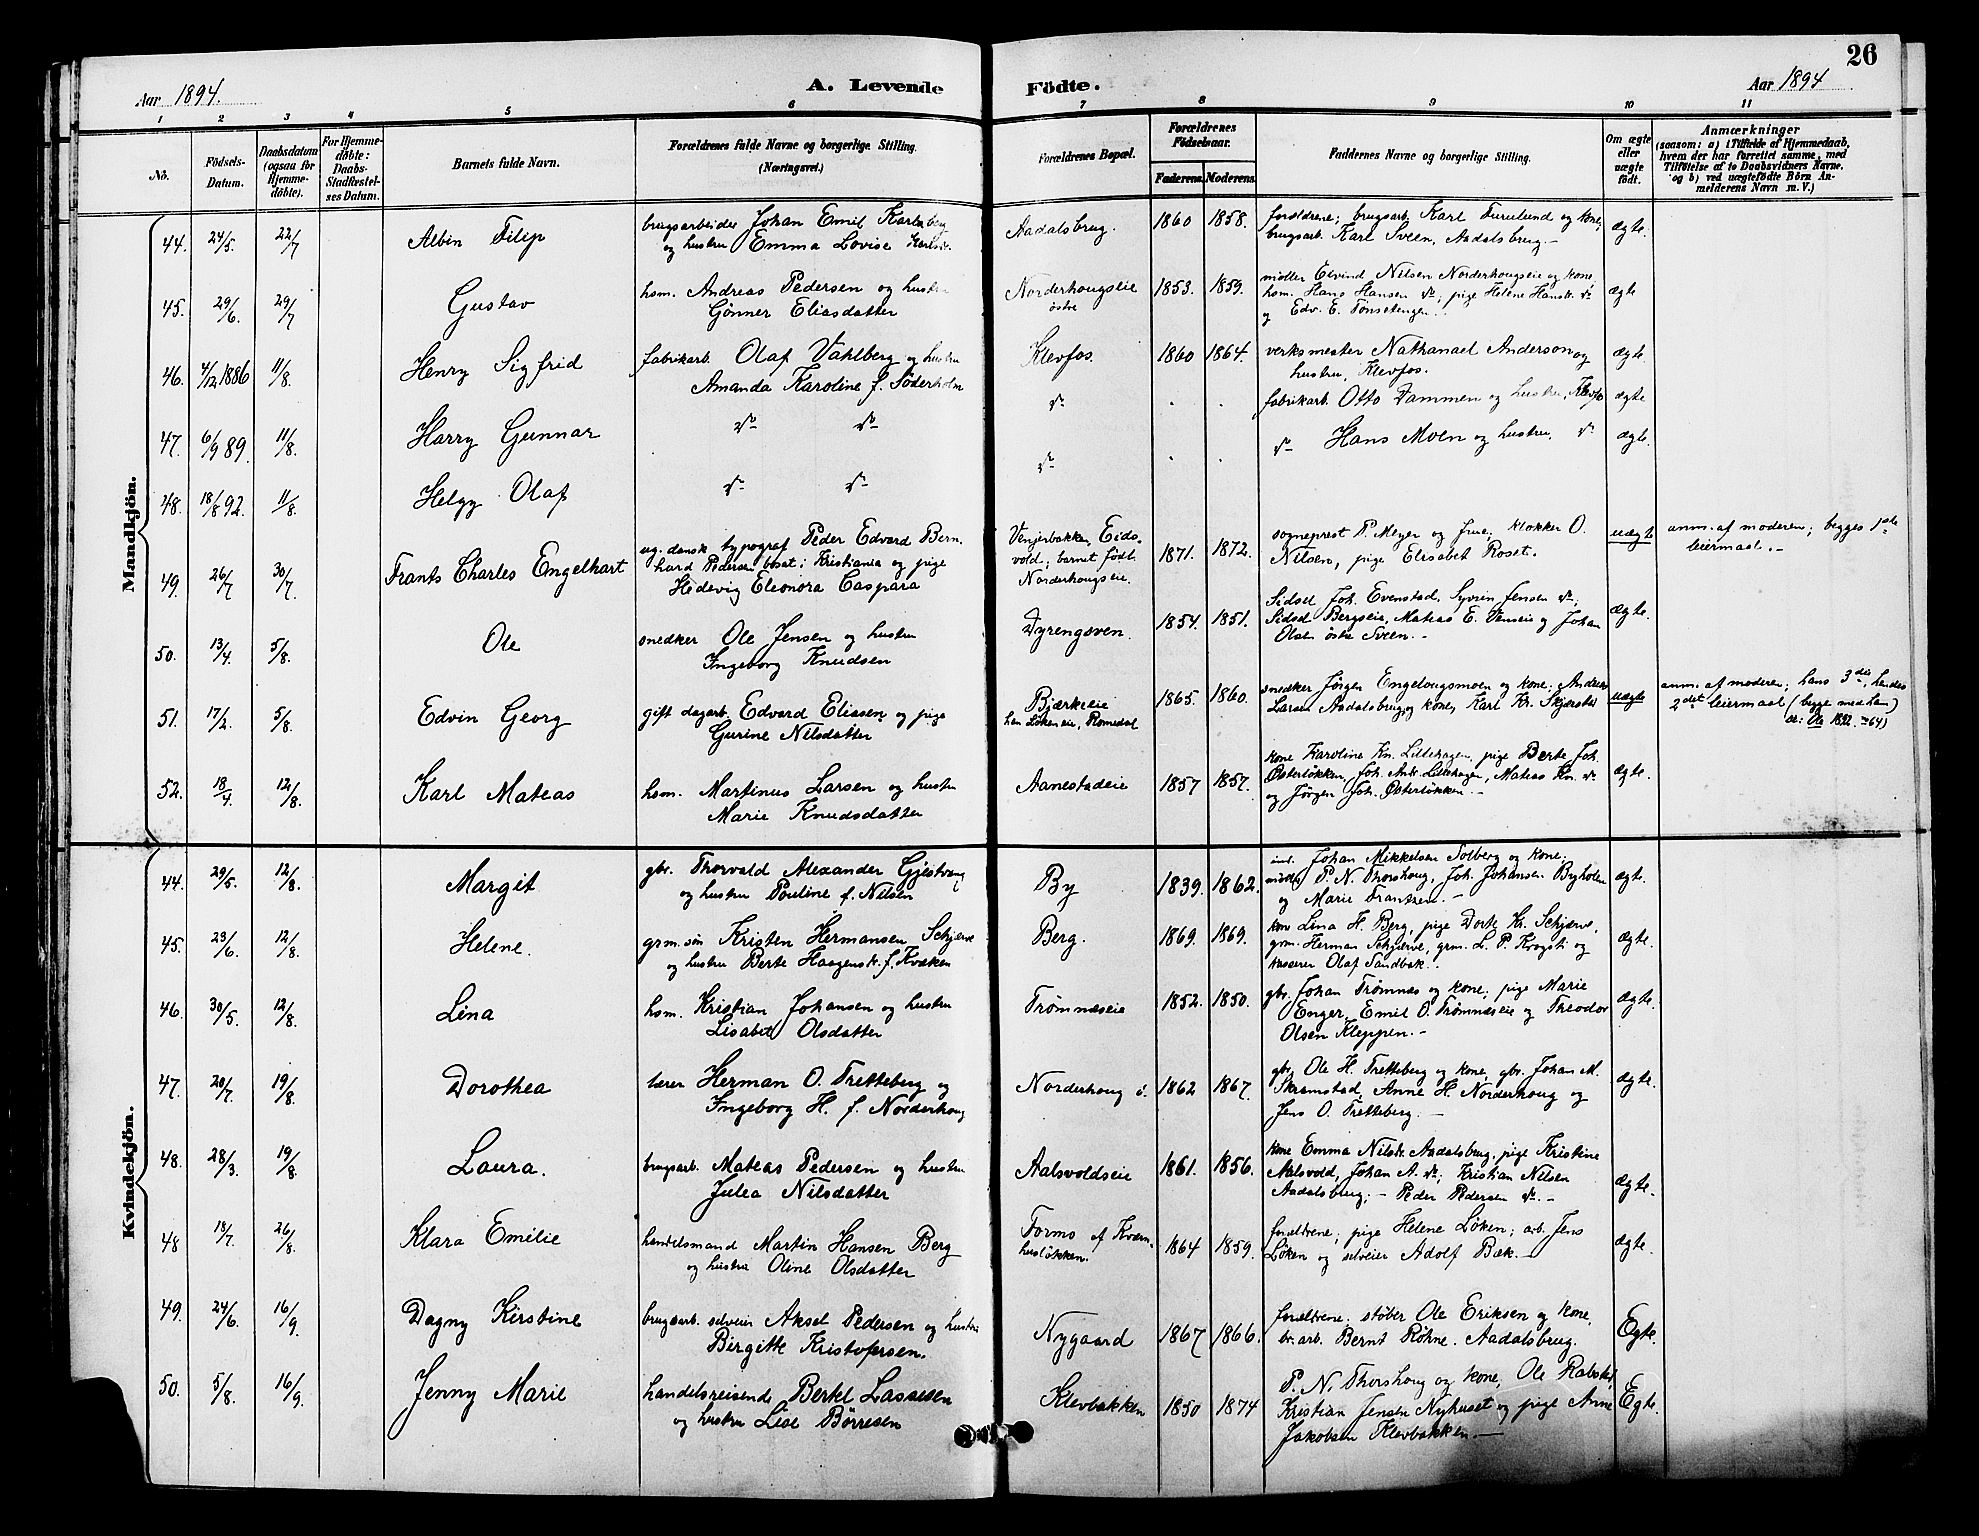 26
Aar 1894.
A. Levende
Födte.
Aar 1894
1 2 3 4 5 6 7 8 9 10 11
No.
Födsels-
Datum.
Daabsdatum
(ogsaa for
Hjemme-
döbte).
For Hjemme-
döbte:
Daabs-
Stadfæstel-
ses Datum.
Barnets fulde Navn.
Forældrenes fulde Navne og borgerlige Stilling.
(Næringsvei.)
Forældrenes Bopæl.
Forældrenes
Födselsaar.
Faderens. Moderens.
Faddernes Navne og borgerlige Stilling.
Om ægte
eller
uægte
födt.
Anmærkninger
(saasom: a) i Tilfælde af Hjemmedaab,
hvem der har forrettet samme, med
Tilföielse af to Daabsvidners Navne,
og b) ved uægtefödte Börn An-
melderens Navn m. V.)
Mandkjön.
44. 24/5. 22/7 Albin Filip
brugsarbeider Johan Emil Karlsberg
og hustru Emma Lovise
Aadalsbrug. 1860 1858.
forældrene; brugsarb. Karl Furulund og kone,
brugsarb. Karl Sveen, Aadalsbrug.-
ægte.
45. 29/6. 29/7 Gustav
hsm. Andreas Pedersen og hustru
Gönner Eliasdatter
Norderhougseie
østre
1853. 1859.
møller Elvind Nilsen Norderhougseie og kone,
hsm. Hans Hansen do; pige Helene Hansd. do
og Edv. E. Tønsetengen.
ægte
46. 4/12 1886 11/8. Henry Sigfrid
fabrikarb. Olaf Vahlberg og hustru
Amanda Karoline f. Söderholm
Klevfos. 1860 1864.
verksmester Nathanael Anderson og
hustru, Klevfos.
ægte.
47. 6/9 89. 11/8. Harry Gunnar
do do
do
fabrikarb. Otto Dammen og hustru, Klevfos
ægte
48. 18/8 92. 11/8. Helgy Olaf
do do
do
do Hans Moen og hustru, do
ægte.
49. 26/7 30/7. Frants Charles Engelhart
ug. dansk typograf Peder Edvard Bern-
hard Pedersen bosat i Kristiania og pige
Hedevig Eleonora Caspara
Venjerbakken, Eids-
vold; barnet født
Norderhougseie.
1871. 1872.
sogneprest P. Meyer og frue; klokker O.
Nilsen, pige Elisabet Roset.
uægte
anm. af moderen; begges 1ste
leiermaal.-
50. 13/4. 5/8. Ole
snedker Ole Jensen og hustru
Ingeborg Knudsen
Dyrengsven. 1854. 1851.
Sidsel Joh. Evenstad, Syverin Jensen do;
Sidsel Bergseie, Mateas E. og Johan
Olsen østre Sveen.-
ægte.
51. 17/2. 5/8. Edvin Georg
gift dagarb. Edvard Eliasen og pige
Gurine Nilsdatter
Bjærkeeie
han Løkeneie, Romedal
1865. 1860.
snedker Jørgen Engelaugsmoen og kone; Andreas
Larsen Aadalsbrug og kone, Karl Kr. Skjærstet
uægte
anm. af moderen; hans 3die, hendes
2det leiermaal (begge med han)
se: Ole 1892. no 64)
52. 18/4. 12/8. Karl Mateas
hsm. Martinus Larsen og hustru
Marie Knudsdatter
Aanestadeie 1857 1857.
kone Karoline Kn. Lillehagen, pige Berte Joh.
Østerløkken, Joh. Ant. Lillehagen, Mateas Kn. do
og Jørgen Joh. Østerløkken.-
ægte.
Kvindekjön.
44. 29/5. 12/8. Margit
gbr. Thorvald Alexander Gjestvang
og hustru Pouline f. Nilsen
By 1839. 1862.
ind. Johan Mikkelsen Solberg og kone;
møller P. N. Thorshoug, Joh. Johansen Byholen
og Marie Frantzen.-
ægte.
45. 23/6. 12/8. Helene.
grm. søn Kristen Hermansen Schjerve
og hustru Berte Haagensd. f. Kvæken
Berg. 1869. 1869.
kone Lina H. Berg, pige Dorte Kr. Schjerve,
grm. Herman Schjerve, grm. L. P. Krogsti og
kasserer Olaf Sandbæk.
ægte.
46. 30/5. 12/8. Lina
hsm. Kristian Johansen og hustru
Lisabet Olsdatter
Trømnæseie 1852. 1850.
gbr. Johan Trømnæs og kone; pige Marie
Enger, Emil O. Trømnæseie og Theodor
Olsen Kleppen.-
ægte.
47. 20/7. 19/8. Dorothea
lærer Herman O. Tretteberg og
Ingeborg H. f. Norderhoug
Norderhoug ø. 1862 1867.
gbr. Ole H. Tretteberg og kone, gbr. Johan M.
Skramstad, Anne H. Norderhoug og
Jens O. Tretteberg.-
ægte.
48. 28/3. 19/8. Laura.
brugsarb. Mateas Pedersen og hustru
Julea Nilsdatter
Aalsvoldseie 1861. 1856.
kone Emma Nilsd. Aadalsbrug, pige Kristine
Aalsvold, Johan A. do; Kristian Nilsen
Aadalsbrug; - Peder Pedersen do.-
ægte.
48 18/7. 26/8. Klara Emilie
handelsmand Martin Hansen Berg
og hustru Oline Olsdatter
Formo af Kværn-
husløkken.
1864 1859.
forældrene; pige Helene Løken; arb. Jens
Løken og selveier Adolf Bæk.-
ægte.
49. 24/6. 16/9. Dagny Kirstine
brugsarb. selveier Aksel Pedersen og hustru
Birgitte Kristofersen.
Nygaard 1867 1866.
forældrene. støber Ole Eriksen og kone,
br.arb. Bernt Röhne. Aadalsbrug.
Egte.
50. 5/8. 16/9. Jenny Marie
handelsreisende Bertel Lassesen
og hustru Lise Børresen
Klevbakken 1850 1874
P. N. Thorshoug og kone, Ole Rabstad,
Kristian Jensen Nyhuset og pige Anne
Jakobsen Klevbakken.-
Egte.